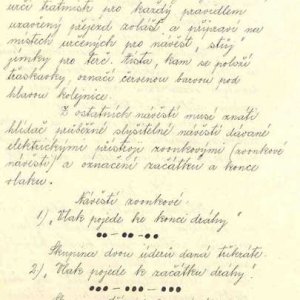 určí kdykoliv pro každý pravidlem
uzavřený přejezd zvlášť a připraví na
místech určených pro návěst „stůj"
pinky pro terč. Místa, kam se položí
třaskavky, označí červenou barvou pod
hlavou kolejnice.
Z ostatních návěstí musí znáti
hlídač průběžné slyšitelné návěsti dávané
elektrickými přístroji zvonkovými (zvonkové
návěsti) a označení začátku a konce
vlaku.
Návěsti zvonkové.
1) „Vlak pojede ke konci dráhy"
●● — ●● — ●●
Skupina dvou úderů daná třikráte.
2) „Vlak pojede k začátku dráhy!
●●● — ●●● — ●●●